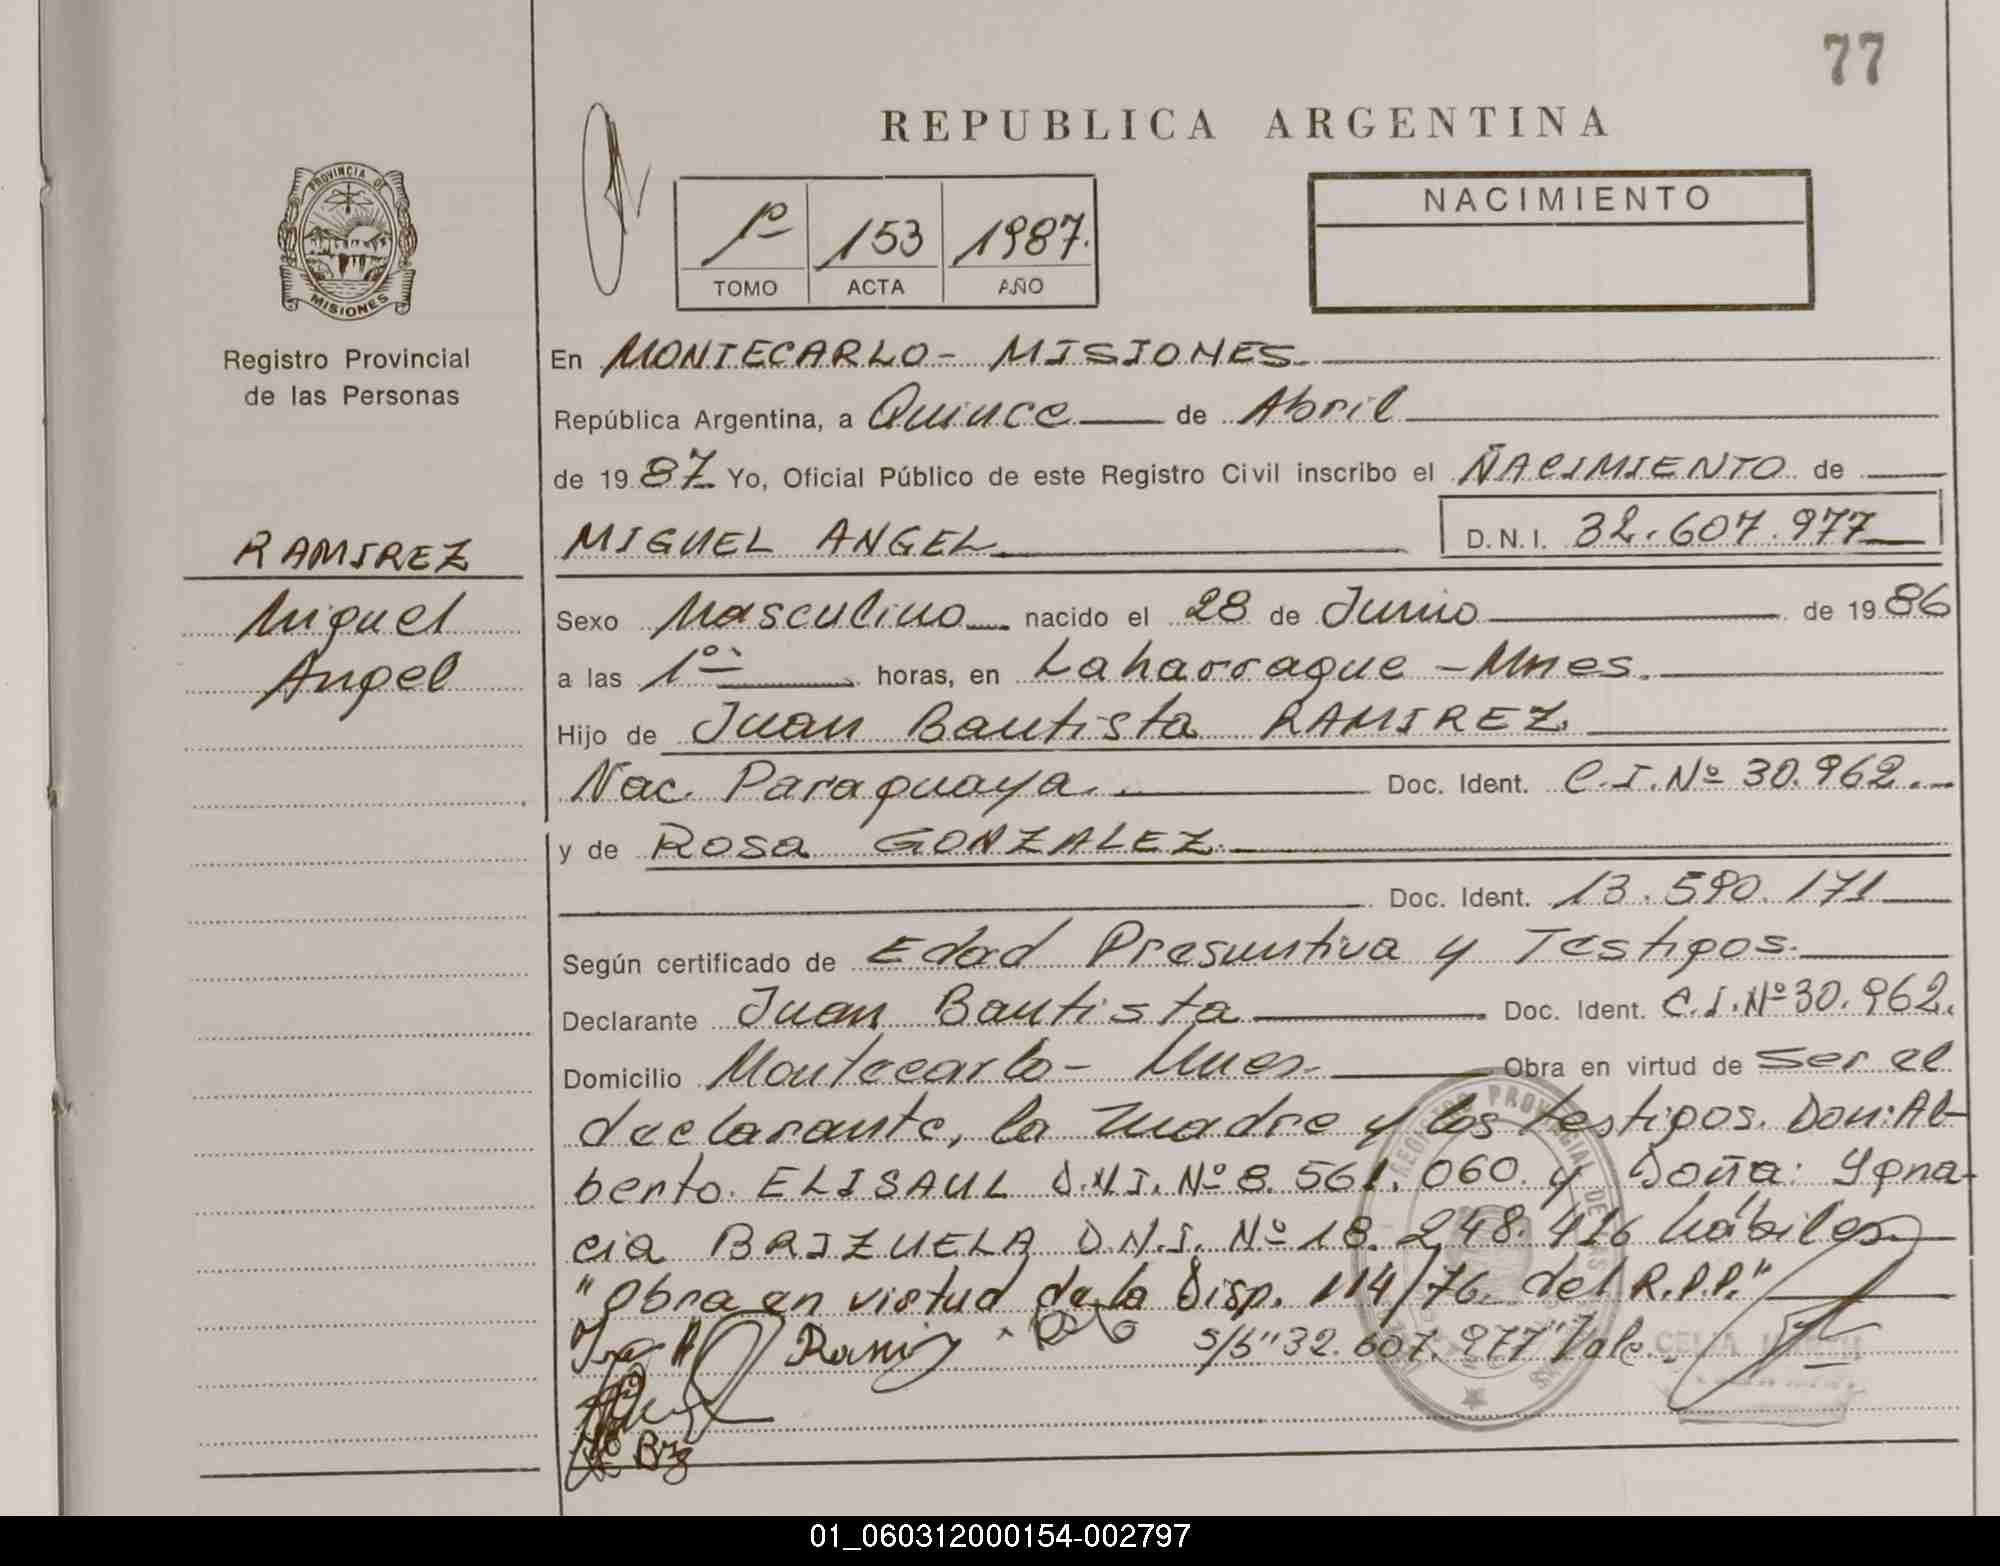 77
REPUBLICA ARGENTINA
PROVINCIA DE
MISIONES
1º 153 1987.
TOMO ACTA AÑO
NACIMIENTO
Registro Provincial
de las Personas
RAMIREZ
Miguel
Angel
En MONTECARLO - MISIONES
República Argentina, a Quince de Abril
de 1987 Yo, Oficial Público de este Registro Civil inscribo el NACIMIENTO de
MIGUEL ANGEL D.N.I. 32.607.977
Sexo Masculino nacido el 28 de Junio de 1986
a las 1º horas, en Laharrague - Mnes.
Hijo de Juan Bautista RAMIREZ
Nac. Paraguaya. Doc. Ident. C.I. Nº 30.962.
y de ROSA GONZALEZ
Doc. Ident. 13.590.171
Según certificado de Edad Presuntiva y Testigos.
Declarante Juan Bautista Doc. Ident. C.I. Nº 30.962.
Domicilio Montecarlo - Mnes. Obra en virtud de ser el
declarante, la madre y los testigos. Don: Al-
berto ELISAUL D.N.I. Nº 8.561.060. y Doña: Ygna-
cia BRIZUELA D.N.I. Nº 18.248.416 hábiles
"Obra en virtud de la Disp. 114/76. del R.P.P."
S/b "32.607.977" Vale.
REGISTRO PROVINCIAL DE LAS
01_060312000154-002797